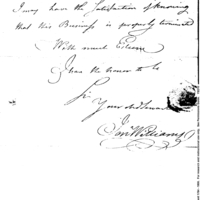 I may have the Satisfaction of knowing
that this Business is properly terminated
With much Esteem
I have the honor to be
Sir
Your
Jon Williams